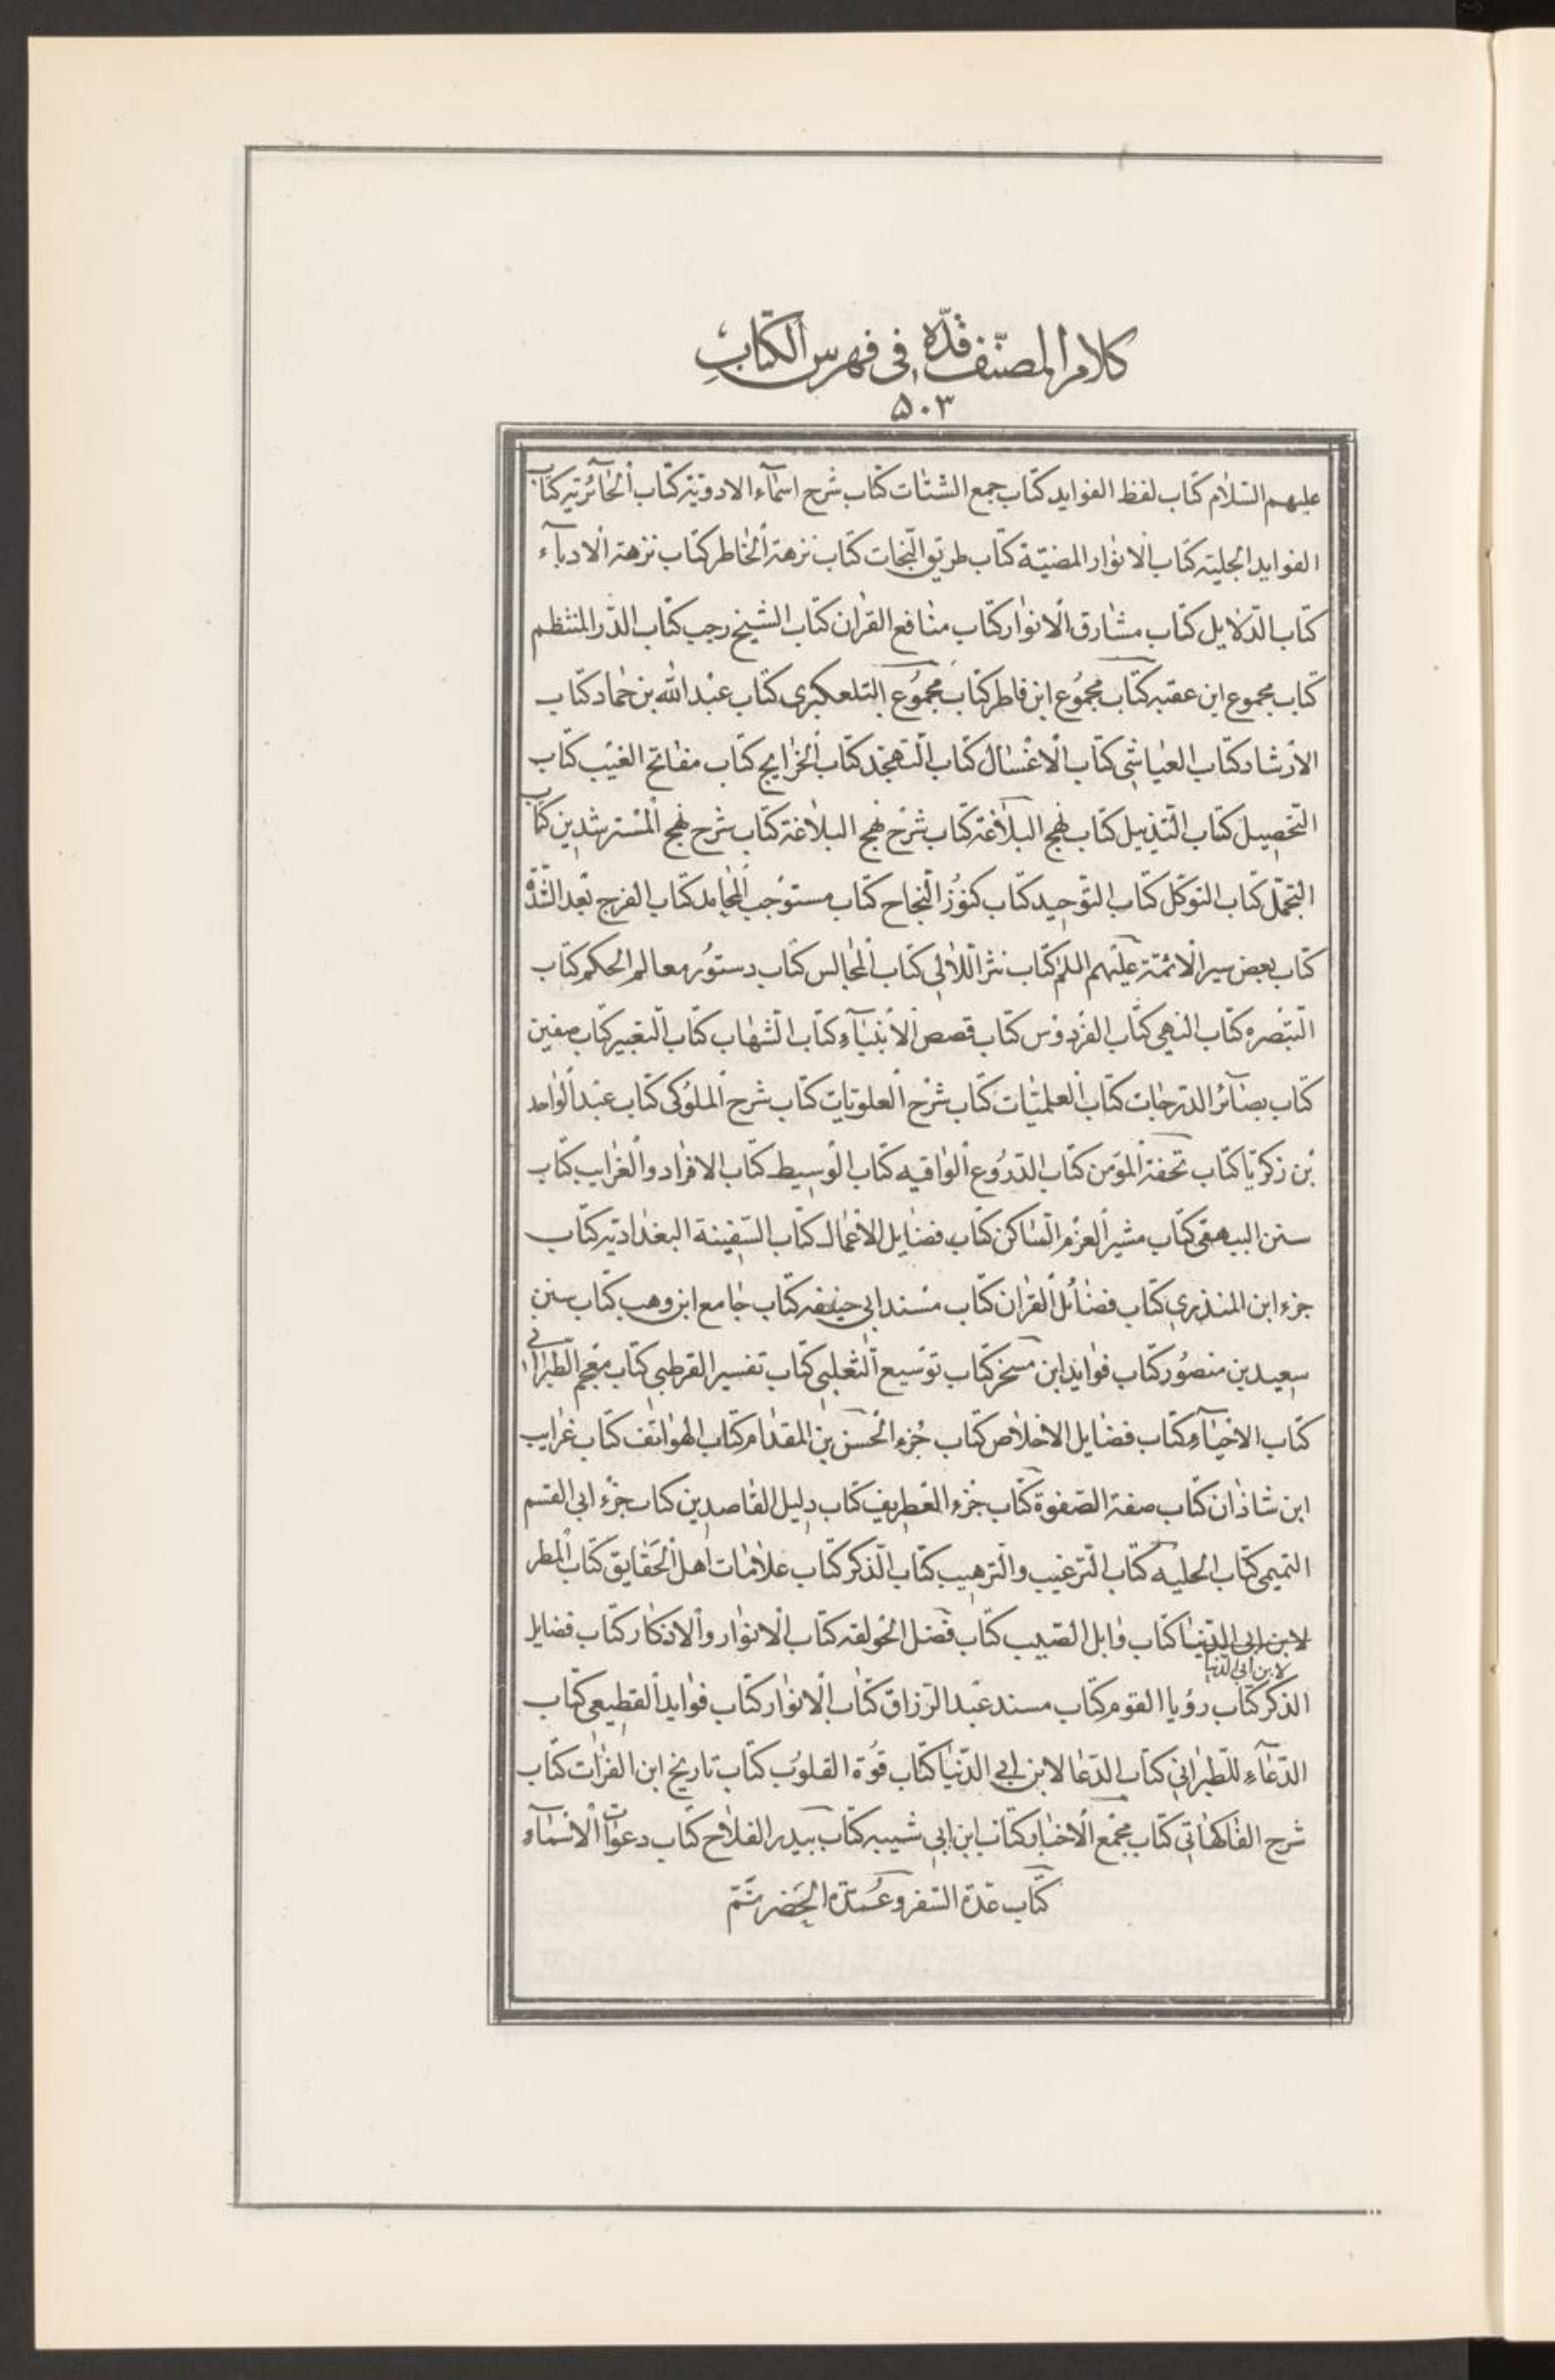 كلام المصنّف قدّه في فهرس الكتاب
۵۰۳
عليهم السّلام كتاب لفظ الفوايد كتاب جمع الشتات كتاب شرح اسمآء الادويّة كتاب الحآئريّه كتاب
الفوايد الجليّه كتاب الانوار المضيّة كتاب طريق النّجات كتاب نزهة الخاطر كتاب نزهة الادبآء
كتاب الدّلايل كتاب مشارق الانوار كتاب منافع القران كتاب الشيخ رجب كتاب الدّر المنتظم
كتاب مجموع ابن عقبه كتاب مجموع ابن فاطر كتاب مجموع التلعكبري كتاب عبد الله بن حماد كتاب
الارشاد كتاب العياشي كتاب الاغسال كتاب التهجّد كتاب الخرايج كتاب مفاتح الغيب كتاب
التحصيل كتاب التذييل كتاب نهج البلاغة كتاب شرح نهج البلاغة كتاب شرح نهج المسترشدين كتاب
التجمّل كتاب التوكّل كتاب التوحيد كتاب كنوز النّجاح كتاب مستوجب المحامد كتاب الفرج بعد الشّدّة
كتاب بعض سير الائمّة عليهم السلم كتاب نثر اللآلي كتاب المجالس كتاب دستور معالم الحكم كتاب
التبصره كتاب النهي كتاب الفردوس كتاب قصص الانبيآء كتاب الشهاب كتاب التعبير كتاب صفين
كتاب بصآئر الدّرجات كتاب العلميّات كتاب شرح العلويّات كتاب شرح الملوكي كتاب عبد الواحد
بن زكريّا كتاب تحفة المؤمن كتاب الدّروع الواقيه كتاب الوسيط كتاب الافراد والغرايب كتاب
سنن البيهقي كتاب مثير العزم السّاكن كتاب فضايل الاعمال كتاب السّفينة البغداديّه كتاب
جزء ابن المنذري كتاب فضائل القران كتاب مسند ابي حنيفه كتاب جامع ابن وهب كتاب سنن
سعيد بن منصور كتاب فوايد ابن مسخر كتاب توسيع الثعلبي كتاب تفسير القرطبي كتاب معجم الطّبراني
كتاب الاحيآء كتاب فضايل الاخلاص كتاب جزء الحسن بن المقدام كتاب الهواتف كتاب غرايب
ابن شاذان كتاب صفة الصّفوة كتاب جزء الغطريف كتاب دليل القاصدين كتاب جزء ابي القسم
التميمي كتاب الحليه كتاب التّرغيب والتّرهيب كتاب الذّكر كتاب علامات اهل الحقايق كتاب المطر
لابن ابي الدّنيا كتاب وابل الصّيب كتاب فضل الحولقه كتاب الانوار والاذكار كتاب فضايل
لابن ابي الدّنيا
الذكر كتاب رؤيا القوم كتاب مسند عبد الرّزاق كتاب الانوار كتاب فوايد القطيعي كتاب
الدّعآء للطّبراني كتاب الدّعا لابن ابي الدّنيا كتاب قوة القلوب كتاب تاريخ ابن الفرات كتاب
شرح الفاكهاني كتاب مجمع الاخبار كتاب ابن ابي شيبه كتاب بيدر الفلاح كتاب دعوات الاسمآء
كتاب عدة السّفر وعمدة الحضر تمّ